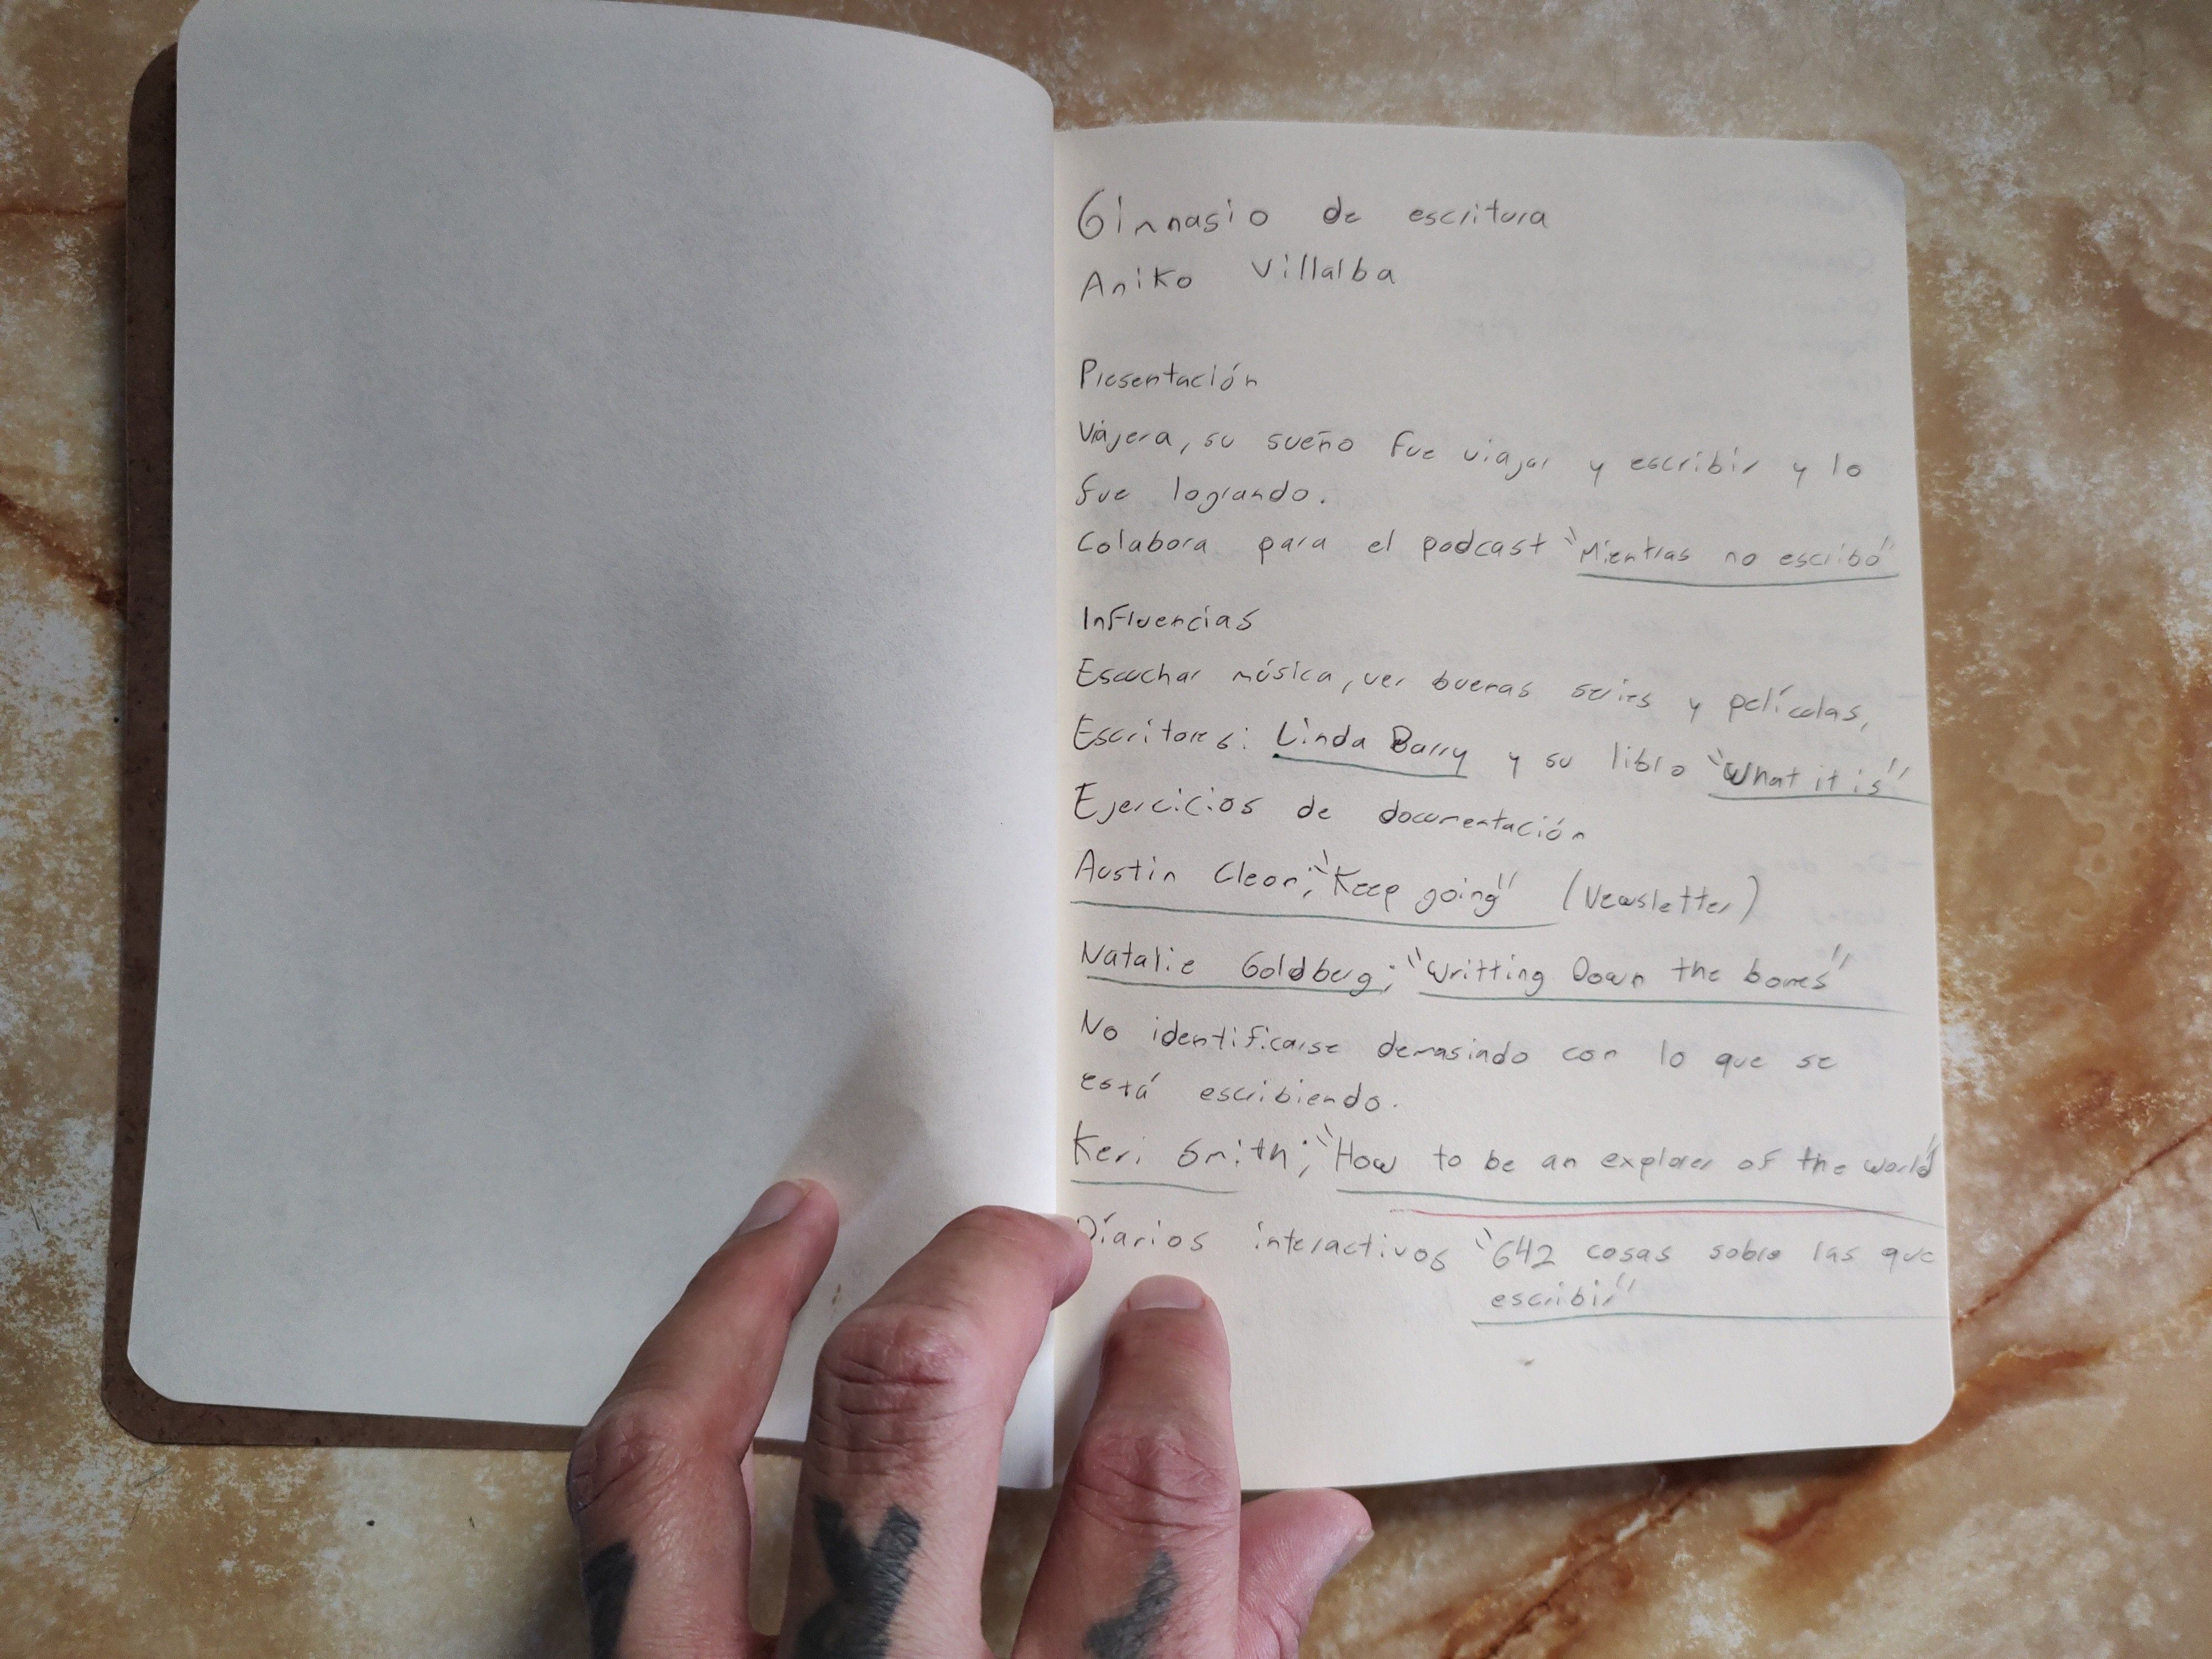 Gimnasio de escritura
Aniko Villalba
Presentación
Viajera, su sueño fue viajar y escribir y lo
fue logrando.
Colabora para el podcast "Mientras no escribo"
Influencias
Escuchar música, ver buenas series y películas,
Escritores: Linda Barry y su libro "What it is"
Ejercicios de documentación
Austin Cleon; "Keep going" (Newsletter)
Natalie Goldberg; "Writting Down the bones"
No identificarse demasiado con lo que se
está escribiendo.
Keri Smith; "How to be an explorer of the world"
Diarios interactivos "642 cosas sobre las que
escribir"